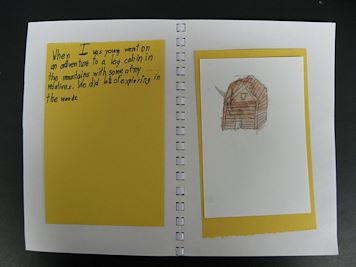 When I was young went on
an adventure to a log cabin in
the mountains with some of my
relatives. We did lots of exploring in
the woods